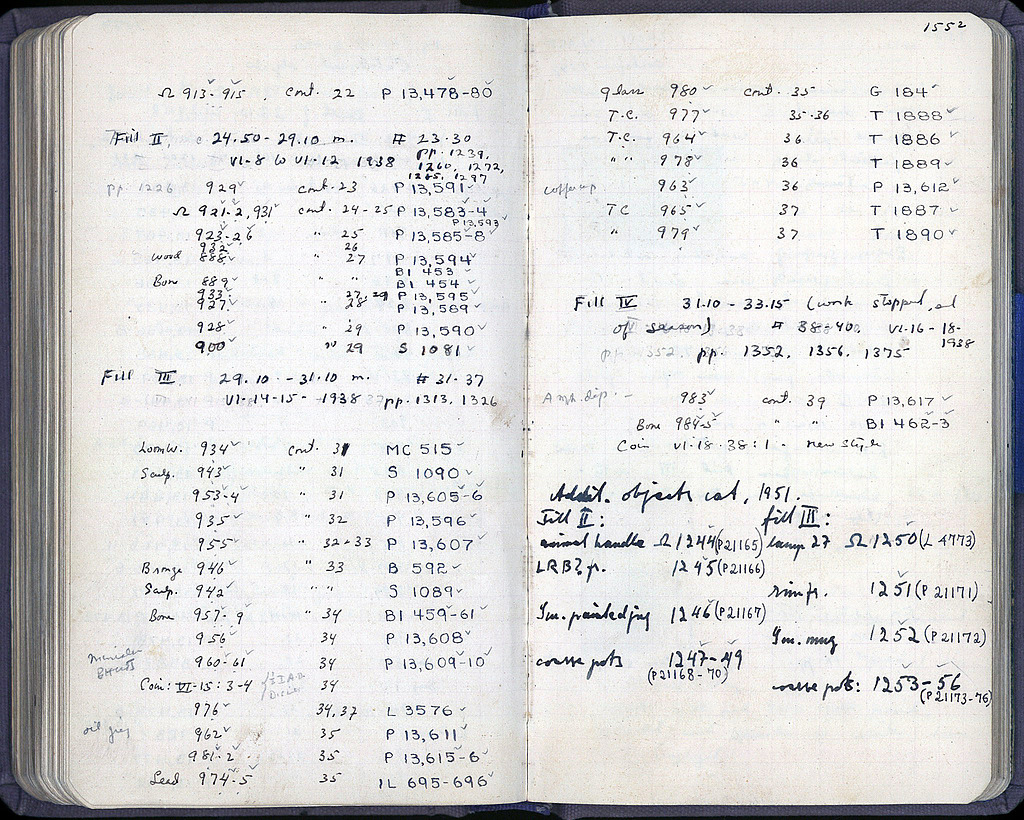 Ω 913-915. cont. 22 P 13,478-80
Fill II c 24.50-29.10 m. # 23-30
VI-8 to VI-12 1938 pp. 1239,
1260, 1272,
1265, 1297
pp. 1226 929 cont. 23 P 13,591
Ω 921-2, 931 cont. 24-25 P 13,583-4
P 13,593
923-26 " 25 P 13,585-8
932 26
wood 888 " 27 P 13,594
BI 453
Bone 889 " " BI 454
933 27, 29 P 13,595
927 " 28 P 13,589
928 " 29 P 13,590
900 " 29 S 1081
Fill III 29.10 - 31.10 m. # 31-37
VI-14-15 - 1938 pp. 1313, 1326
Loomw. 934 cont. 31 MC 515
Sculp. 943 " 31 S 1090
953-4 " 31 P 13,605-6
935 " 32 P 13,596
955 " 32+33 P 13,607
Bronze 946 " 33 B 592
Sculp. 942 " " S 1089
Bone 957-9 " 34 BI 459-61
956 34 P 13,608
960-61 34 P 13,609-10
Coin: VI-15: 3-4 34
976 34, 37 L 3576
oil jug 962 35 P 13,611
981-2 35 P 13,615-6
Lead 974-5 35 IL 695-696
1552
glass 980 cont. 35 G 184
T.C. 977 35-36 T 1888
T.C. 964 36 T 1886
" " 978 36 T 1889
963 36 P 13,612
TC 965 37 T 1887
" 979 37 T 1890
Fill IV 31.10 - 33.15 (work stopped, end
of season) # 38-40. VI-16-18-
1938
pp. 1352, 1356, 1375
983 cont. 39 P 13,617
Bone 984-5 " " BI 462-3
Coin VI-18-38:1 - new style
Addit. objects cat, 1951.
Fill II: fill III:
animal handle Ω 1244 (P21165) lamp 27 Ω 1250 (L 4773)
LRB? fr. 1245 (P21166)
rim fr. 1251 (P21171)
Im. painted jug 1246 (P21167)
Im. mug 1252 (P21172)
coarse pots 1247-49
(P21168-70)
coarse pots: 1253-56
(P21173-76)